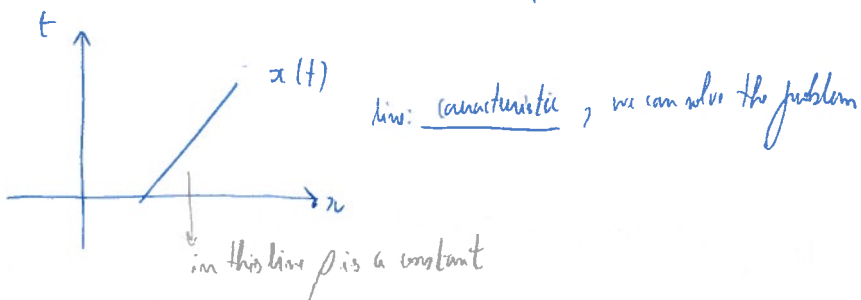 t
x(t)
line: caracteristic, we can solve the problem
x
in this line ρ is a constant